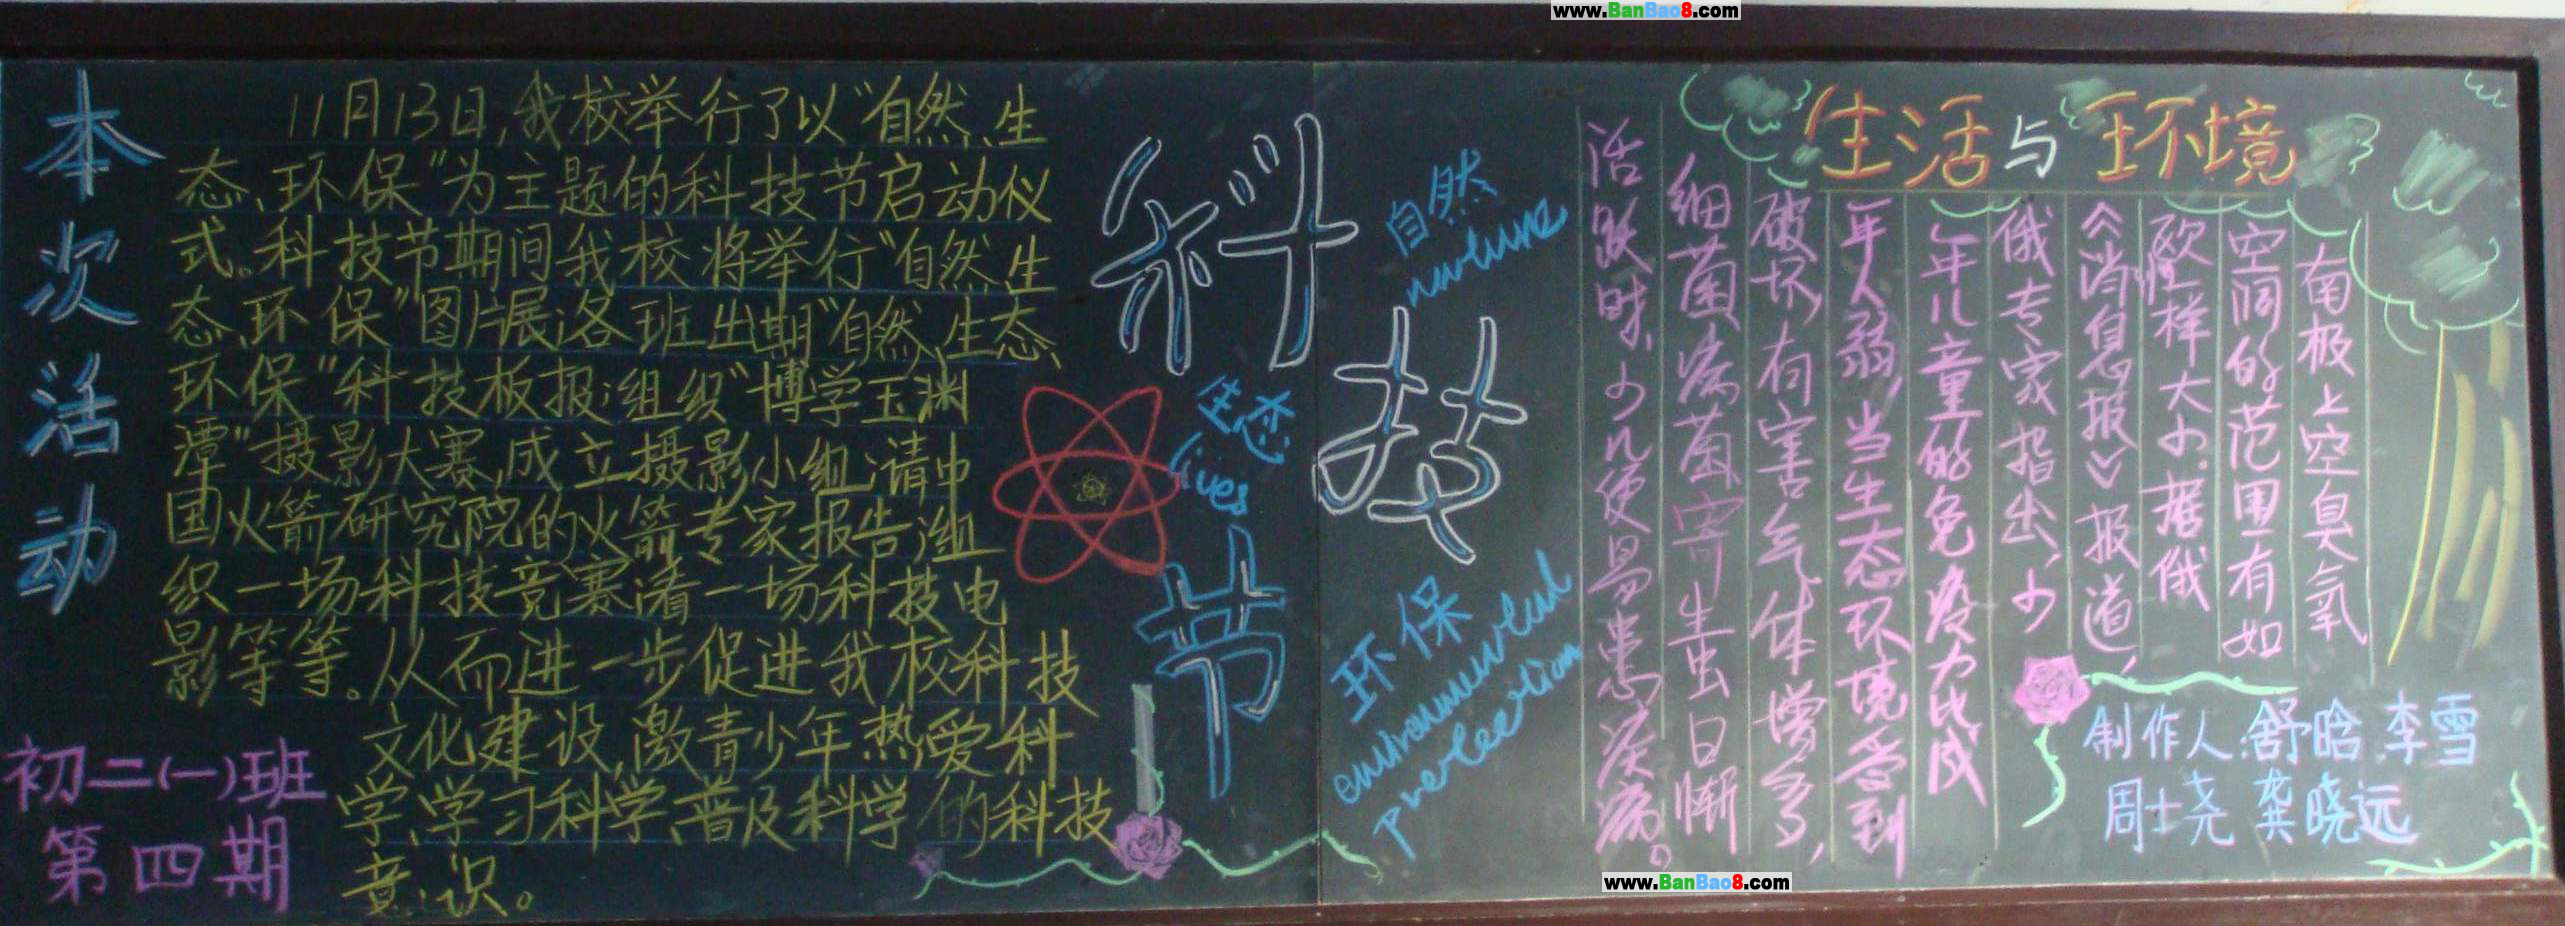 www.BanBao8.com
本次活动
11月13日,我校举行了以“自然、生
态、环保”为主题的科技节启动仪
式。科技节期间我校将举行“自然、生
态、环保”图片展;各班出期“自然、生态、
环保”科技板报;组织“博学玉渊
潭”摄影大赛,成立摄影小组;请中
国火箭研究院的火箭专家报告;组
织一场科技竞赛;看一场科技电
影等等。从而进一步促进我校科技
文化建设,激青少年热爱科
学、学习科学、普及科学的科技
意识。
初二(一)班
第四期
科技节
自然
生态
lives
环保
environmental
protection
生活与环境
南极上空臭氧
空洞的范围有如
欧洲一样大小.据俄
《消息报》报道,
俄专家指出,少
年儿童的免疫力比成
年人弱,当生态环境受到
破坏,有害气体增多,
细菌病菌寄生虫日渐
活跃时,少儿便易患疾病。
制作人:舒晗 李雪
周士尧 龚晓远
www.BanBao8.com